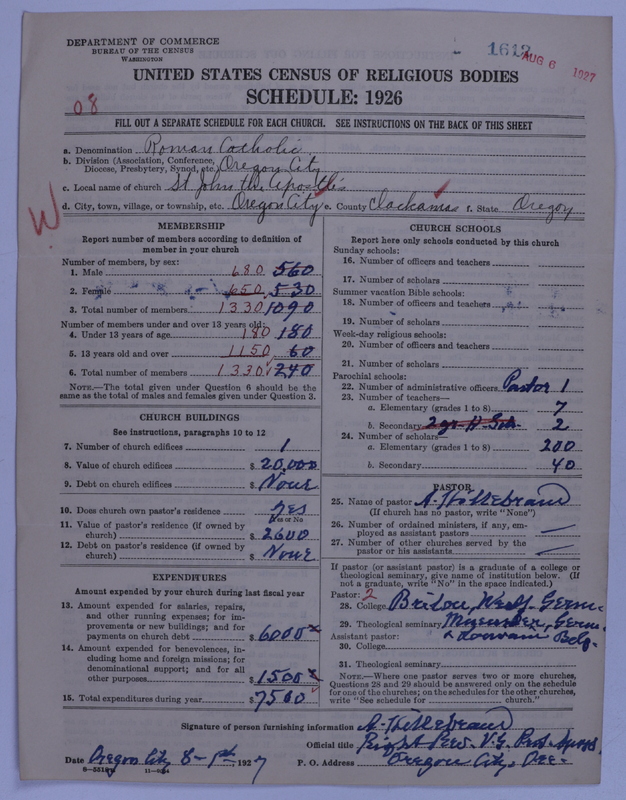 DEPARTMENT OF COMMERCE
BUREAU OF THE CENSUS
WASHINGTON
1612
AUG 6 1927
UNITED STATES CENSUS OF RELIGIOUS BODIES
SCHEDULE: 1926
08
FILL OUT A SEPARATE SCHEDULE FOR EACH CHURCH. SEE INSTRUCTIONS ON THE BACK OF THIS SHEET
a. Denomination Roman Catholic
b. Division (Association, Conference, Diocese, Presbytery, Synod, etc.) Oregon City
c. Local name of church St Johns the Apostle
d. City, town, village, or township, etc. Oregon City e. County Clackamas f. State Oregon
W
MEMBERSHIP
Report number of members according to definition of
member in your church
Number of members, by sex:
1. Male 680 560
2. Female 650 530
3. Total number of members 1330 1090
Number of members under and over 13 years old:
4. Under 13 years of age 180 180
5. 13 years old and over 1150 60
6. Total number of members 1330 240
NOTE.—The total given under Question 6 should be the
same as the total of males and females given under Question 3.
CHURCH BUILDINGS
See instructions, paragraphs 10 to 12
7. Number of church edifices 1
8. Value of church edifices $ 20,000
9. Debt on church edifices $ None
10. Does church own pastor's residence? Yes
Yes or No
11. Value of pastor's residence (if owned by
church) $ 2600
12. Debt on pastor's residence (if owned by
church) $ None
EXPENDITURES
Amount expended by your church during last fiscal year
13. Amount expended for salaries, repairs,
and other running expenses; for im-
provements or new buildings; and for
payments on church debt $ 6000
14. Amount expended for benevolences, in-
cluding home and foreign missions; for
denominational support; and for all
other purposes $ 1500
15. Total expenditures during year $ 7500
CHURCH SCHOOLS
Report here only schools conducted by this church
Sunday schools:
16. Number of officers and teachers
17. Number of scholars
Summer vacation Bible schools:
18. Number of officers and teachers
19. Number of scholars
Week-day religious schools:
20. Number of officers and teachers
21. Number of scholars
Parochial schools:
22. Number of administrative officers Pastor 1
23. Number of teachers—
a. Elementary (grades 1 to 8) 7
b. Secondary 2
24. Number of scholars—
a. Elementary (grades 1 to 8) 200
b. Secondary 40
PASTOR
25. Name of pastor A. Hillebrand
(If church has no pastor, write "None")
26. Number of ordained ministers, if any, em-
ployed as assistant pastors —
27. Number of other churches served by the
pastor or his assistants —
If pastor (or assistant pastor) is a graduate of a college or
theological seminary, give name of institution below. (If
not a graduate, write "No" in the space indicated.)
Pastor: 2
28. College Brilon, Westf. Germ.
29. Theological seminary Muenster, Germ.
Assistant pastor: & Louvain Belg.
30. College
31. Theological seminary
NOTE.—Where one pastor serves two or more churches,
Questions 28 and 29 should be answered only on the schedule
for one of the churches; on the schedules for the other churches,
write "See schedule for church."
Signature of person furnishing information A. Hillebrand
Official title Right Rev. V.G.
Date Oregon City 8-1st, 1927 P. O. Address Oregon City, Ore.
8—5518 11—924